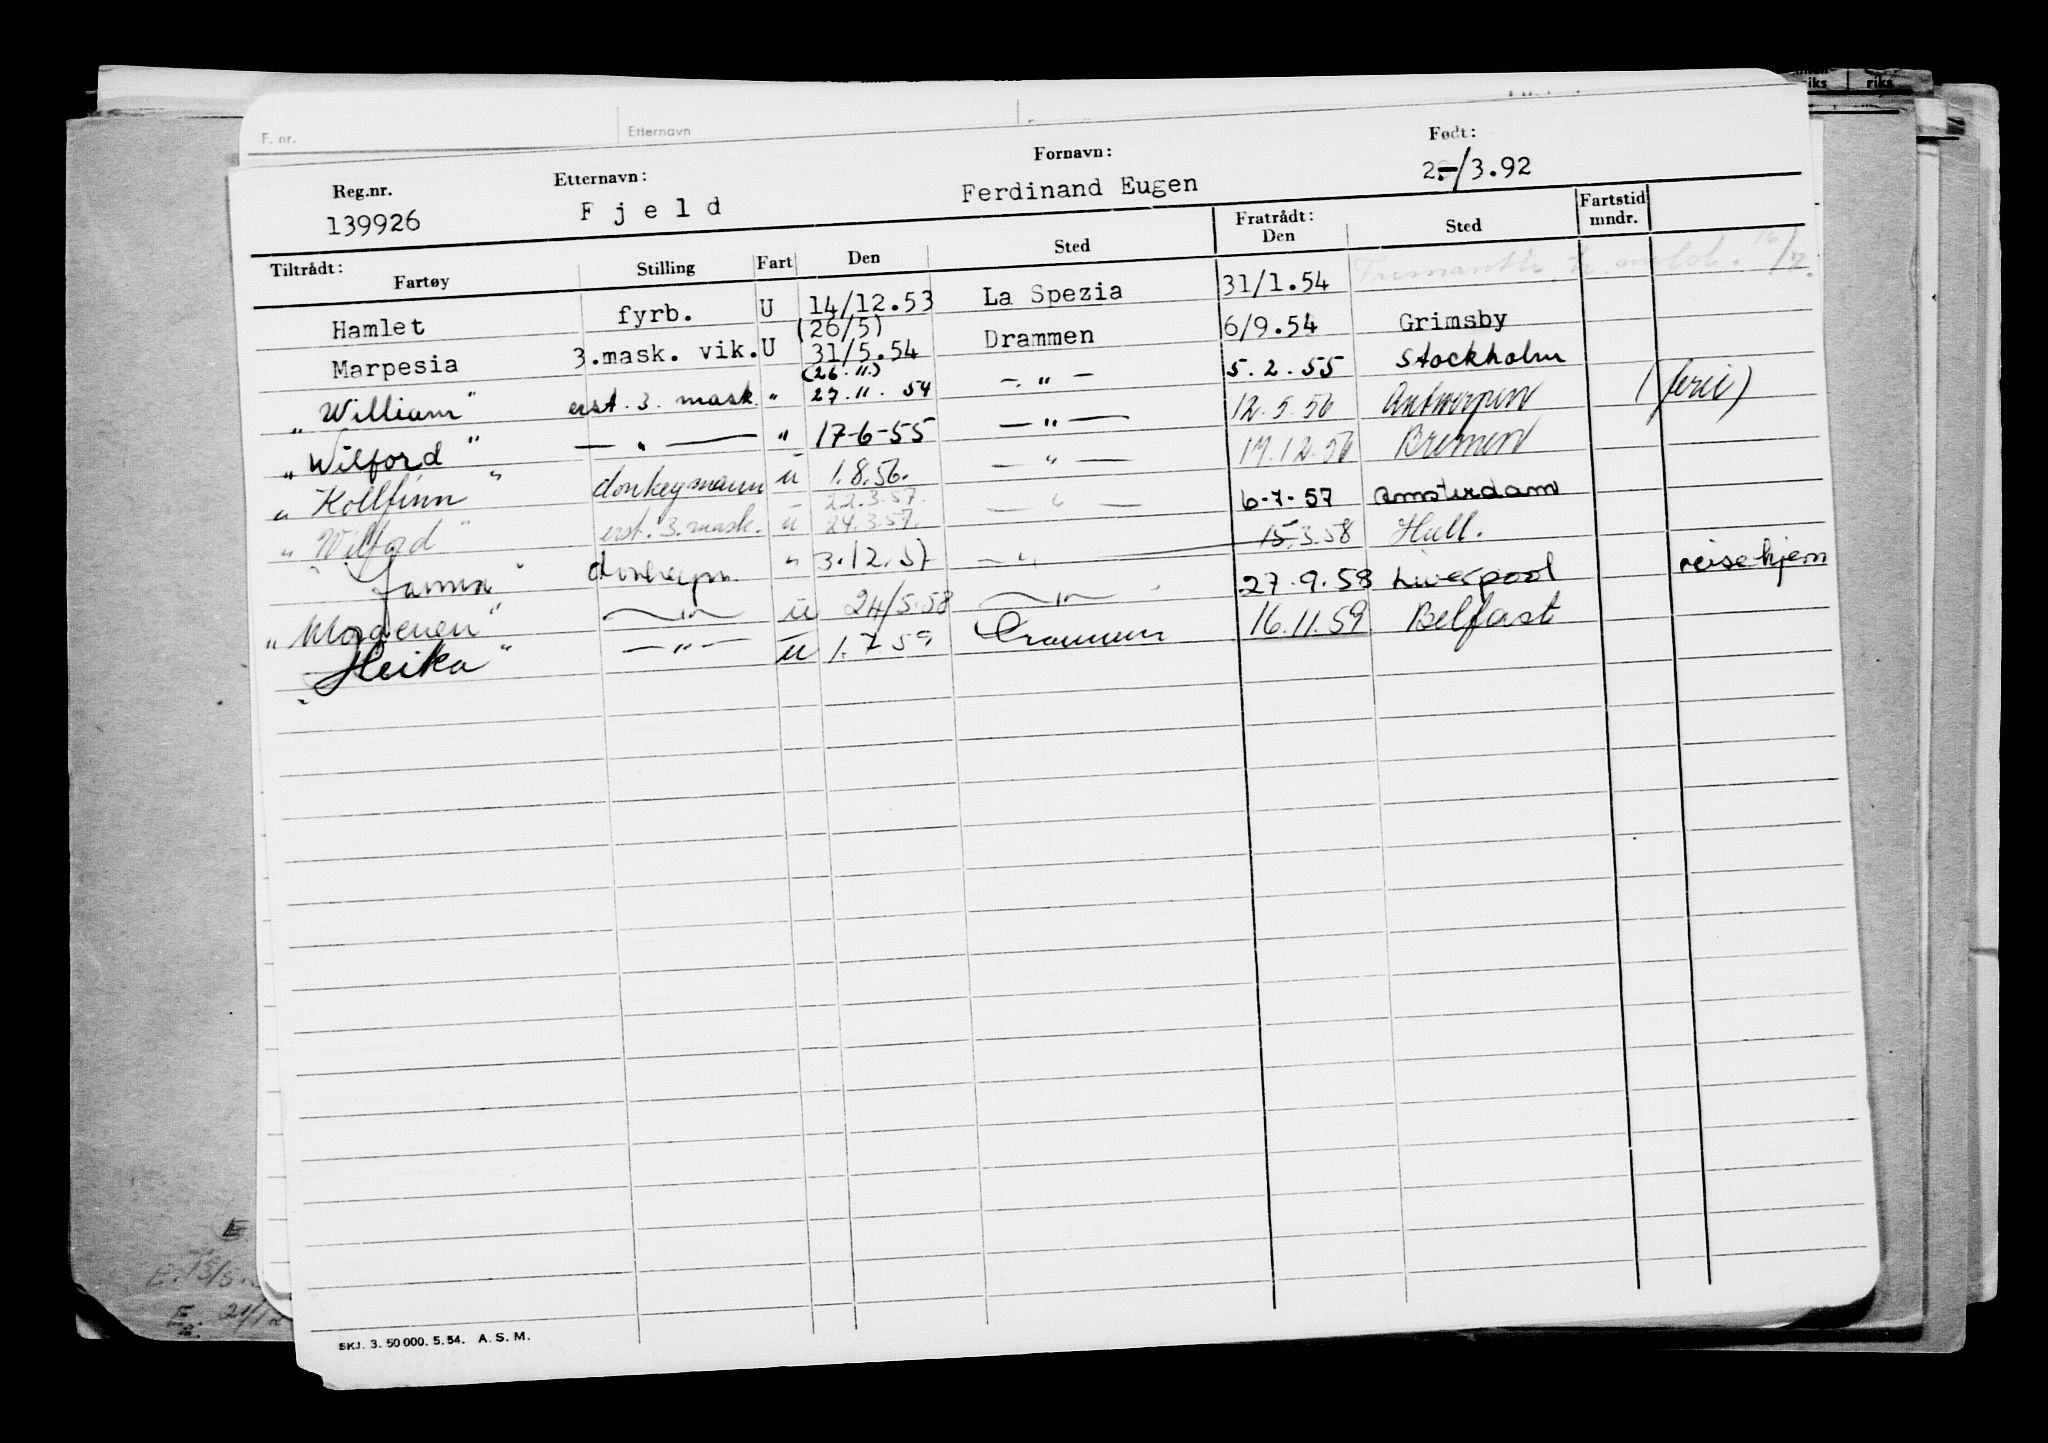 F. nr. Etternavn
Reg.nr. Etternavn: Fornavn: Født:
139926 Fjeld Ferdinand Eugen 2.-/3.92
Tiltrådt: Fartøy Stilling Fart Den Sted Fratrådt: Den Sted Fartstid mndr.
Hamlet fyrb. U 14/12.53 La Spezia 31/1.54
(26/5)
Marpesia 3.mask. vik. U 31/5.54 Drammen 6/9.54 Grimsby
(26.11.)
"William" erst. 3. mask. " 27.11.54 - " - 5.2.55 Stockholm
"Wilford" - " - " 17-6-55 - " - 12.5.56 Antwerpen (ferie)
"Kollfinn" donkeymann u 1.8.56. - " - 17.12.56 Bremen
22.3.57.
"Wilford" erst. 3. mask. u 24.3.57. - " - 6-7-57 Amsterdam
" " donkeym. " 3.12.57 - " - 15.3.58 Hull.
" " - " - u 24/5.58 - " - 27.9.58 Liverpool reise hjem
"Heika" - " - u 1.7.59 Drammen 16.11.59 Belfast
E
E. 21/12
SKJ. 3. 50 000. 5. 54. A. S. M.